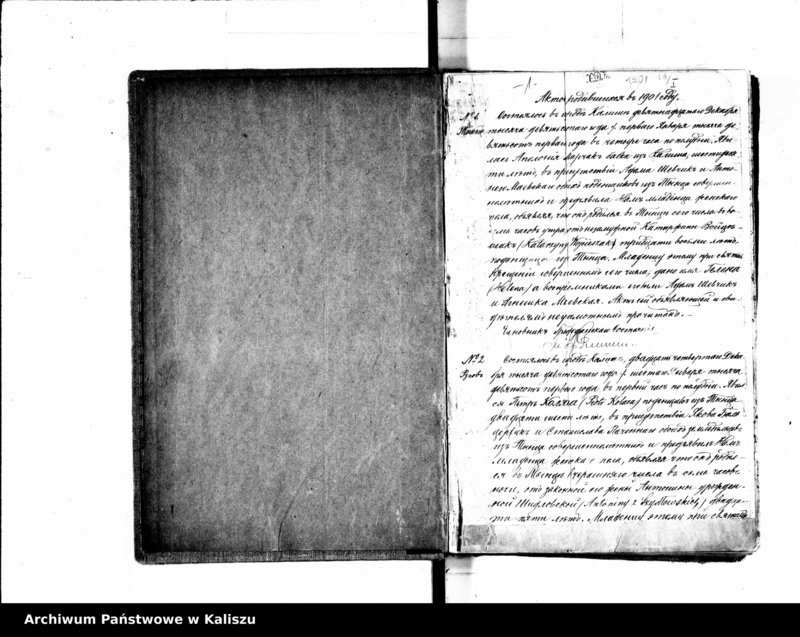 -1-
1901
Акты родившихся въ 1901 году.
№ 1
Тынецъ
Состоялось въ городѣ Калишѣ девятнадцатаго Декабря
тысяча девятисотаго года / перваго Января тысяча де
вятьсотъ перваго года въ четыре часа по полудни. Яви
лась Аполонія бабка изъ Калиша, шестидеся
ти лѣтъ, въ присутствіи Адама Шевчикъ и Анто
на Маевскаго обоихъ поденщиковъ изъ Тынца совершен
нолѣтнихъ и предъявила Намъ младенца женскаго
пола, объявляя, что онъ родился въ Тынцѣ сего числа въ во
семь часовъ утра отъ незамужной Катаржины
(Katarzyny) тридцати восьми лѣтъ,
поденщицы изъ Тынца. Младенцу этому при святомъ
крещеніи совершенномъ сего числа, дано имя Гелена
(Helena) а воспріемниками его были Адамъ Шевчикъ
и Агнешка Маевская. Актъ сей объявляющей и сви
дѣтелямъ неграмотнымъ прочитанъ.-
Чиновникъ Гражданскаго Состоянія
№ 2
Состоялось въ городѣ Калишѣ, двадцать четвертаго Дека
бря тысяча девятисотаго года / шестаго Января тысяча
девятьсотъ перваго года въ первый часъ по полудни. Явил
ся Петръ (Piotr) поденщикъ изъ Тынца
двадцати шести лѣтъ, въ присутствіи Якова
и Станислава обоихъ земледѣльцевъ
изъ Тынца совершеннолѣтнихъ и предъявилъ Намъ
младенца женскаго пола, объявляя что онъ родил
ся въ Тынцѣ вчерашняго числа въ семь часовъ
ночи, отъ законной его жены Антонины урожден
ной Шидловской (Antoniny z Szydłowskich) двадца
ти пяти лѣтъ. Младенцу этому при святомъ
Archiwum Państwowe w Kaliszu